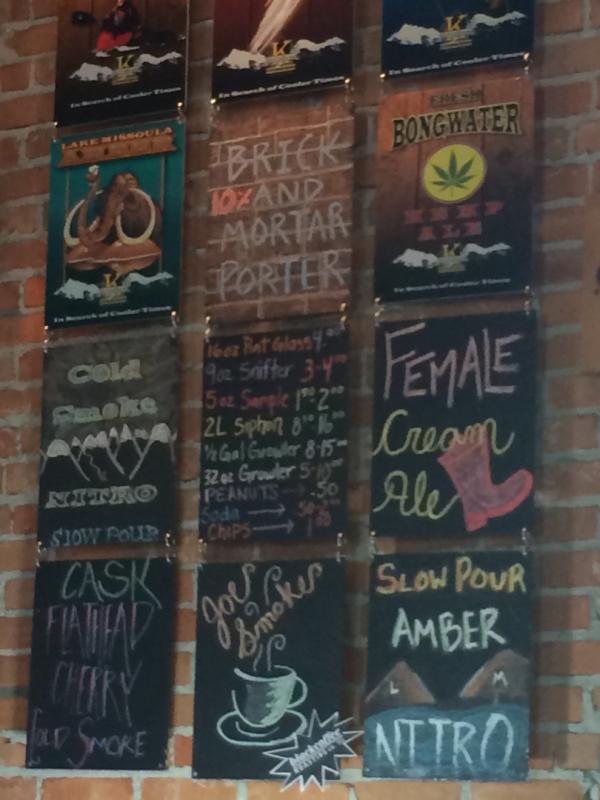 K
In Search of Cooler Times
K
In Search of Cooler Times
K
In Search of Cooler Times
LAKE MISSOULA
K
In Search of Cooler Times
BRICK
10% AND
MORTAR
PORTER
FRESH
BONGWATER
HEMP
ALE
K
In Search of Cooler Times
Cold
Smoke
NITRO
SLOW POUR
16oz Pint Glass 4.00
9oz Snifter 3-4.00
5oz Sample 1.50-2.00
2L Siphon 8.00-16.00
1/2 Gal Growler 8-15.00
32oz Growler 5-10.00
PEANUTS → .50
Soda →
CHIPS → 1.00
FEMALE
Cream
Ale
CASK
FLATHEAD
CHERRY
COLD SMOKE
Joe
Smoke
SLOW POUR
AMBER
L M
NITRO